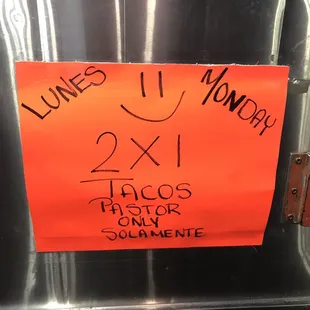 LUNES MONDAY
2X1
TACOS
PASTOR
ONLY
SOLAMENTE